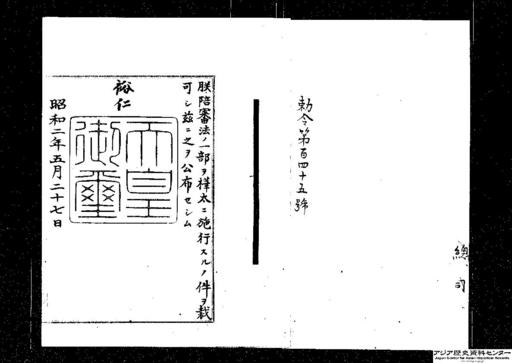 勅令第百四十五號
總司
朕陪審法ノ一部ヲ樺太ニ施行スルノ件ヲ裁
可シ玆ニ之ヲ公布セシム
裕仁
天皇御璽
昭和二年五月二十七日
アジア歴史資料センター
Japan Center for Asian Historical Records